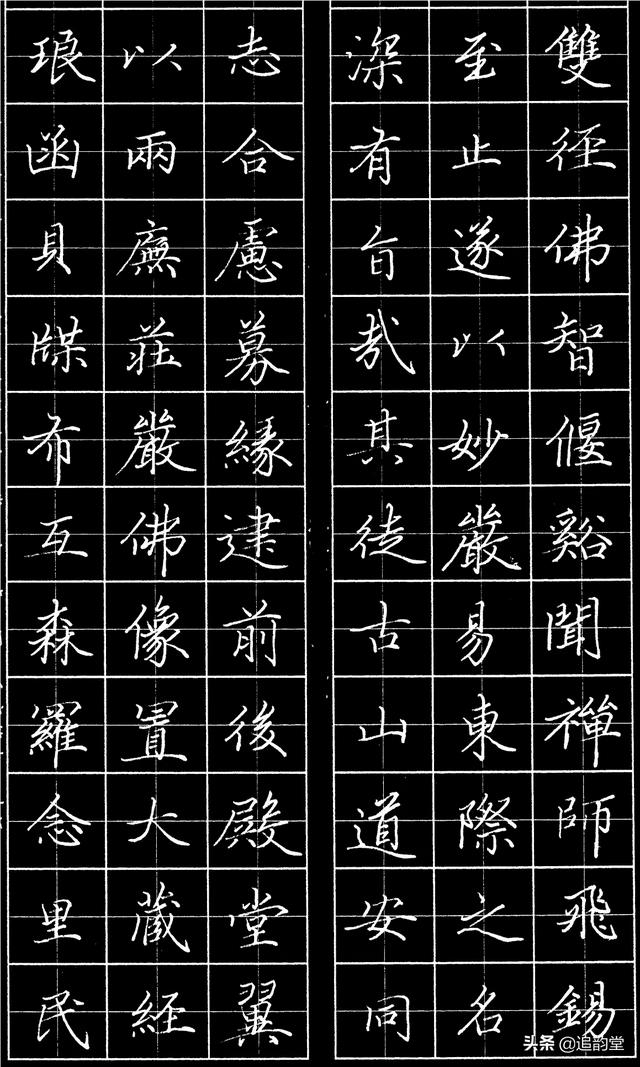 雙徑佛智偃谿聞禪師飛錫
至止遂以妙嚴易東際之名
深有旨哉其徒古山道安同
志合慮募緣建前後殿堂翼
以兩廡莊嚴佛像置大藏經
琅函貝牒布互森羅念里民
头条 @追韵堂